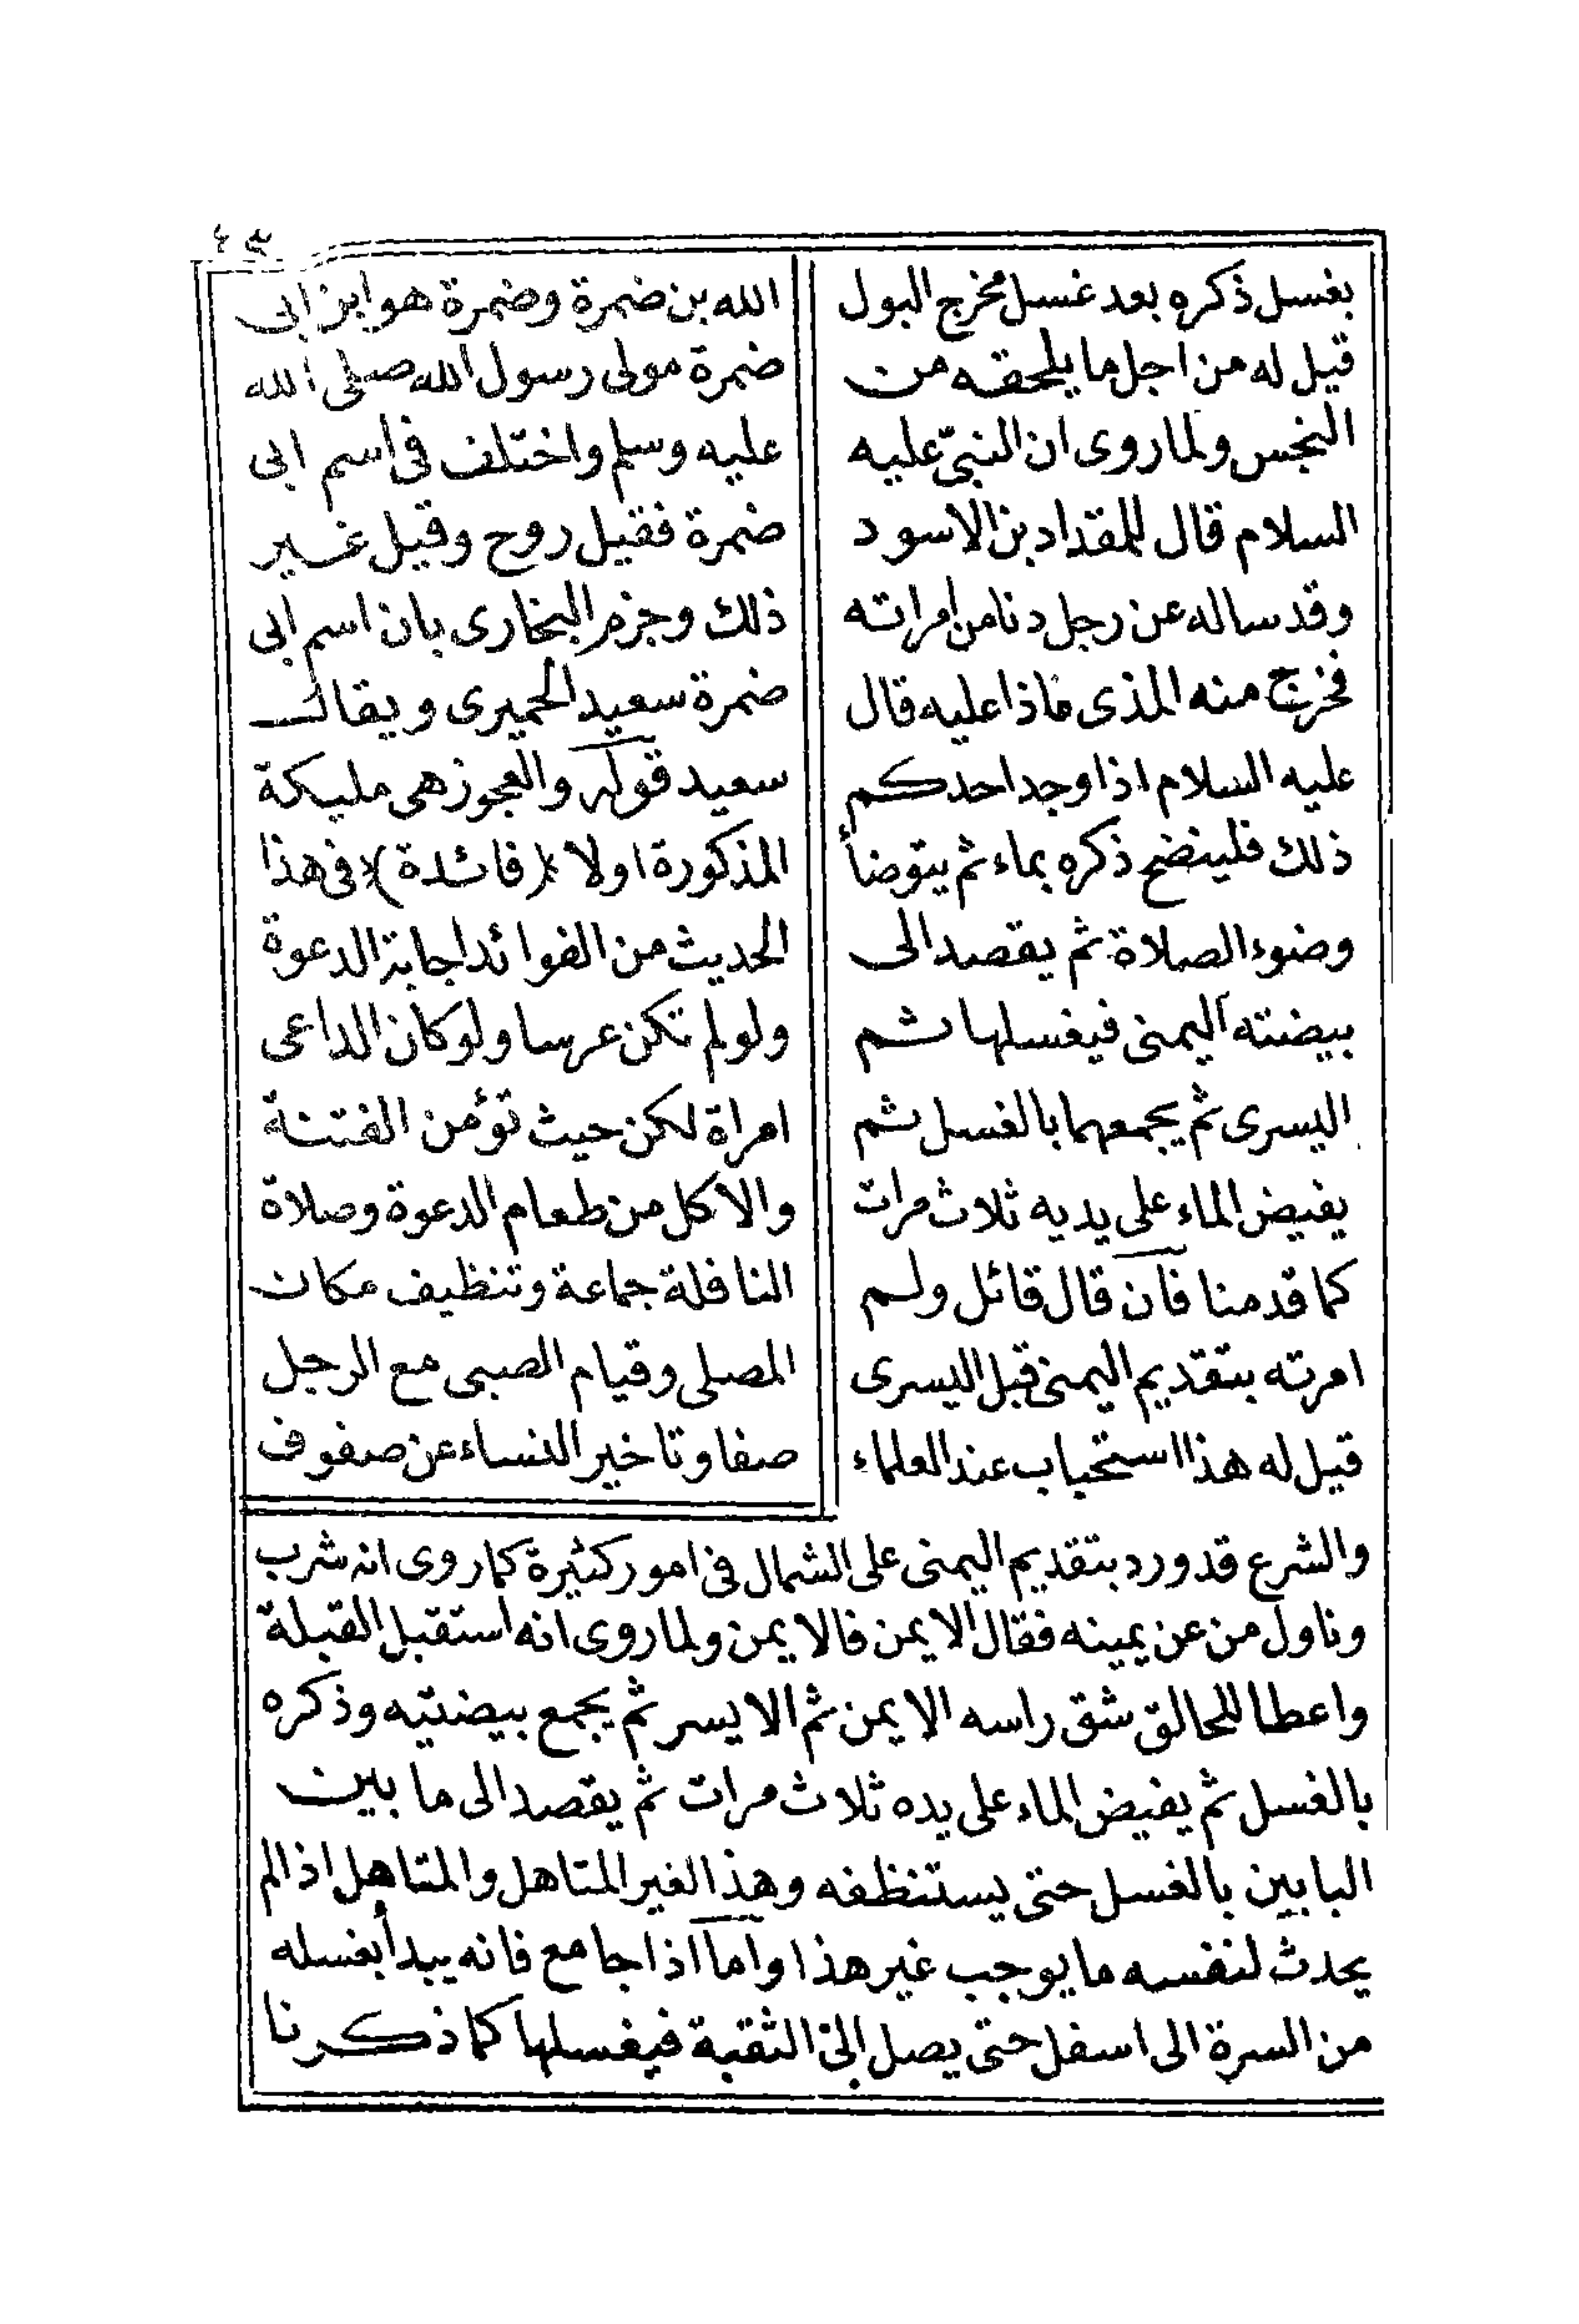 ٤٣
بغسل ذكره بعد غسل مخرج البول
قيل له من اجل ما يلحقه من
النجس ولما روى ان النبىّ عليه
السلام قال للمقداد بن الاسود
وقد ساله عن رجل دنا من امراته
فخرج منه المذى ماذا عليه قال
عليه السلام اذا وجد احدكم
ذلك فلينضح ذكره بماء ثم يتوضأ
وضوء الصلاة ثم يقصد الى
بيضته اليمنى فيغسلها ثم
اليسرى ثم يجمعهما بالغسل ثم
يفيض الماء على يديه ثلاث مرات
كما قدمنا فان قال قائل ولم
امرته بتقديم اليمنى قبل اليسرى
قيل له هذا استحباب عند العلماء
الله بن ضمرة وضمرة هو ابن ابى
ضمرة مولى رسول الله صلى الله
عليه وسلم واختلف فى اسم ابى
ضمرة فقيل روح وقيل غير
ذلك وجزم البخارى بان اسم ابى
ضمرة سعيد الحميرى ويقال
سعيد قوله والعجوز هى مليكة
المذكورة اولا (فائدة) فى هذا
الحديث من الفوائد اجابة الدعوة
ولو لم تكن عرسا ولو كان الداعى
امراة لكن حيث تؤمن الفتنة
والاكل من طعام الدعوة وصلاة
النافلة جماعة وتنظيف مكان
المصلى وقيام الصبى مع الرجل
صفا وتاخير النساء عن صفوف
والشرع قد ورد بتقديم اليمنى على الشمال فى امور كثيرة كما روى انه شرب
وناول من عن يمينه فقال الايمن فالايمن ولما روى انه استقبل القبلة
واعطا للحالق شق راسه الايمن ثم الايسر ثم يجمع بيضتيه وذكره
بالغسل ثم يفيض الماء على يده ثلاث مرات ثم يقصد الى ما بين
البابين بالغسل حتى يستنظفه وهذا لغير المتاهل والمتاهل اذا لم
يحدث لنفسه ما يوجب غير هذا واما اذا جامع فانه يبدأ بغسله
من السرة الى اسفل حتى يصل الى الثقبة فيغسلها كما ذكرنا